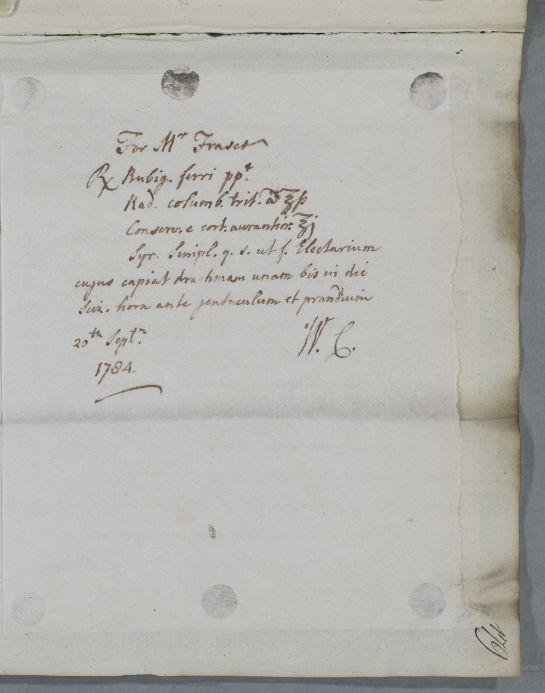 For Mr Fraser
℞ Rubig. ferri ppt
Rad. columb. trit. a ʒß
Conserv. e cort. aurantior. ℥j
Syr. Simpl. q. s. ut f. Electarium
cujus capiat drachmam unam bis in die
Sciz. hora ante jentaculum et prandium
20th Septr.
W. C.
1784.